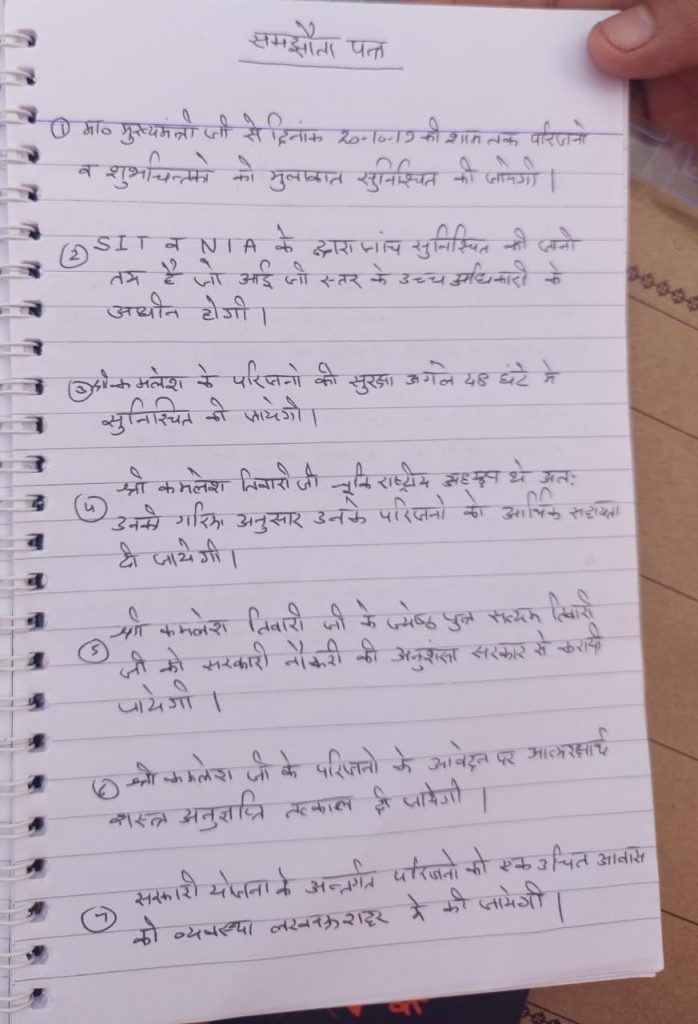 समझौता पत्र
① मा० मुख्यमंत्री जी से दिनांक 20-10-19 की शाम तक परिजनो
व शुभचिन्तको की मुलाकात सुनिश्चित की जायेगी।
② SIT व NIA के द्वारा जांच सुनिश्चित की जानी
तय है जो आई जी स्तर के उच्च अधिकारी के
अधीन होगी।
③ श्री कमलेश के परिजनो की सुरक्षा अगले 48 घंटे मे
सुनिश्चित की जायेगी।
श्री कमलेश तिवारी जी चूकि राष्ट्रीय अध्यक्ष थे अतः
④ उनके गरिमा अनुसार उनके परिजनो को आर्थिक सहायता
दी जायेगी।
श्री कमलेश तिवारी जी के ज्येष्ठ पुत्र सत्यम तिवारी
⑤ जी को सरकारी नौकरी की अनुशंसा सरकार से करायी
जायेगी।
⑥ श्री कमलेश जी के परिजनो के आवेदन पर आत्मरक्षार्थ
शस्त्र अनुज्ञप्ति तत्काल दी जायेगी।
सरकारी योजना के अन्तर्गत परिजनो को एक उचित आवास
⑦ की व्यवस्था लखनऊ शहर मे की जायेगी।